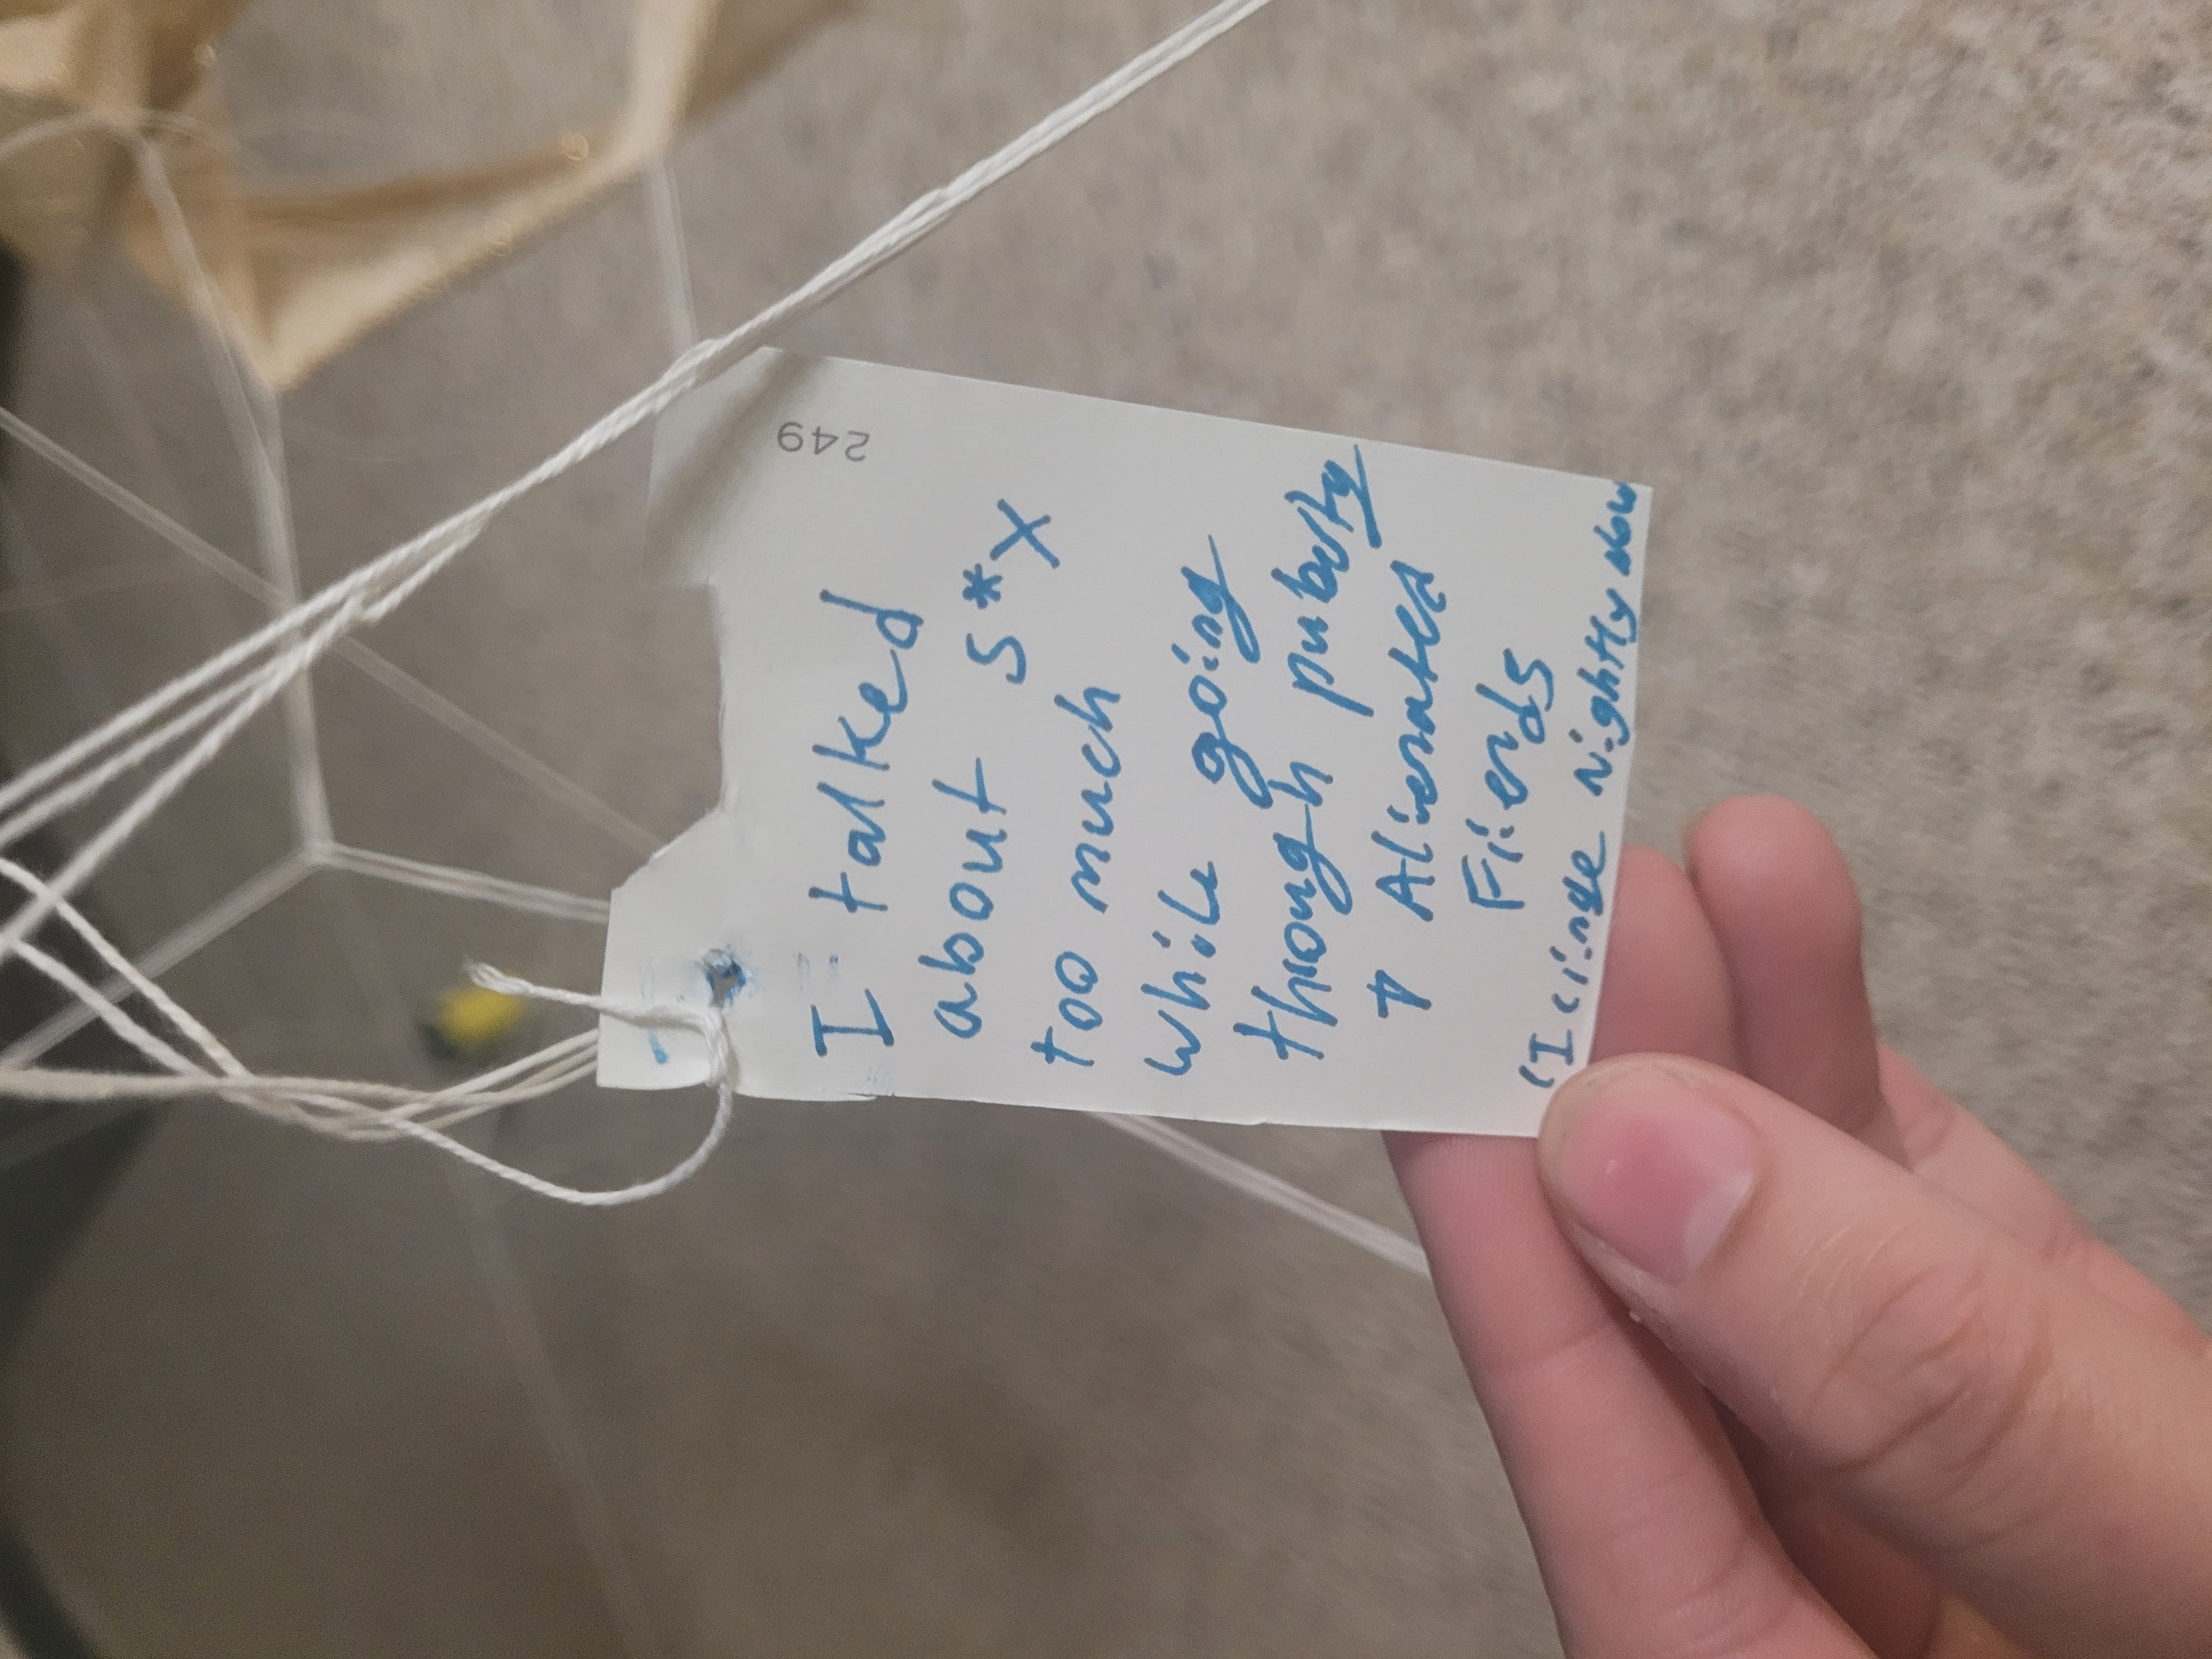 249
I talked
about s*x
too much
while going
through puberty
+ Alienated
Fiends
(I cringe Nightly now